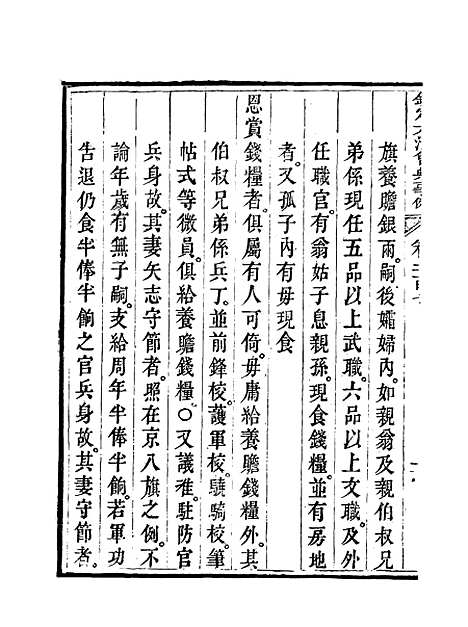 旗養贍銀兩。嗣後孀婦內。如親翁及親伯叔兄
弟係現任五品以上武職。六品以上文職。及外
任職官。有翁姑子息親孫。現食錢糧。並有房地
者。又孤子內有毋現食
恩賞錢糧者。俱屬有人可倚。毋庸給養贍錢糧外。其
伯叔兄弟係兵丁。並前鋒校。護軍校。驍騎校。筆
帖式等微員。俱給養贍錢糧○又議准。駐防官
兵身故。其妻矢志守節者。照在京八旗之例。不
論年歲有無子嗣。支給周年半俸半餉。若軍功
告退仍食半俸半餉之官兵身故。其妻守節者。